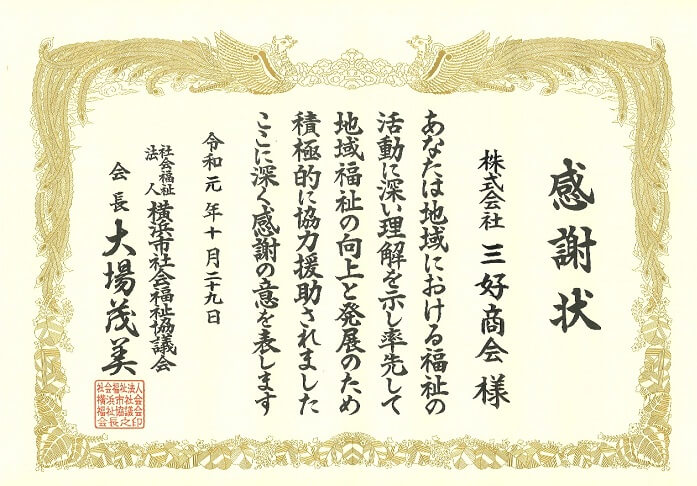 感謝状
株式会社 三好商会 様
あなたは地域における福祉の
活動に深い理解を示し率先して
地域福祉の向上と発展のため
積極的に協力援助されました
ここに深く感謝の意を表します
令和元年十月二十九日
社会福祉法人 横浜市社会福祉協議会
会長 大場茂美
社会福祉法人
横浜市社会
福祉協議会
会長之印